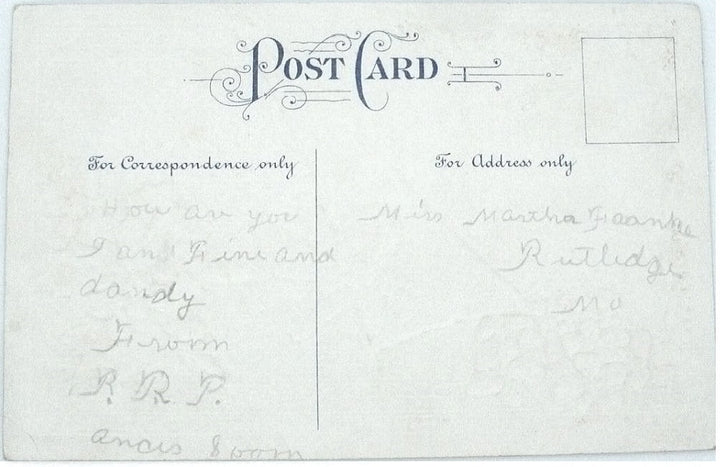 POST CARD
For Correspondence only
For Address only
How are you
I am Fine and
dandy
From
R. R. P.
ances
Miss Martha
Rutledge
Mo